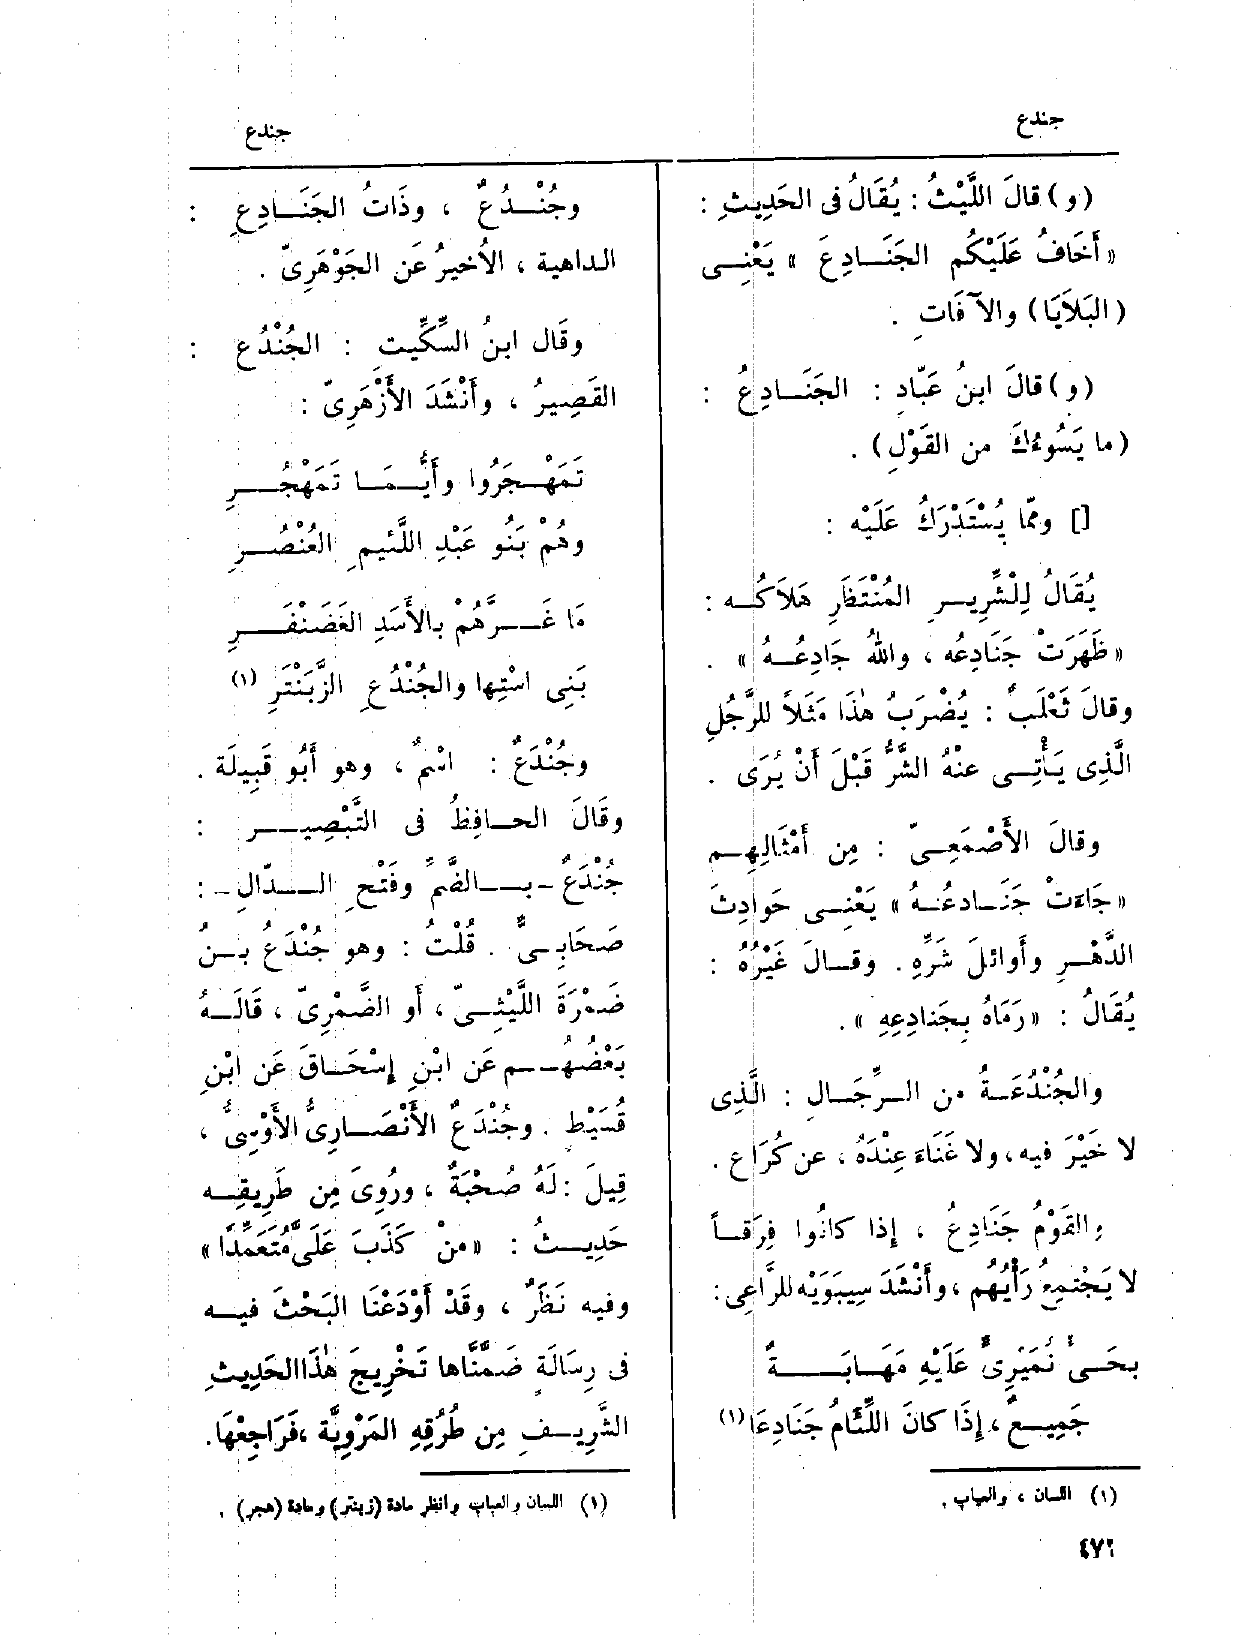 جندع
(و) قالَ اللَّيْثُ : يُقَالُ فى الحَدِيثِ :
« أَخَافُ عَلَيْكُم الجَنَــادِعَ » يَعْنِــى
(البَلاَيَا) والآفَاتِ .
(و) قالَ ابنُ عَبّادٍ : الجَنَــادِعُ :
(ما يَسُوءُكَ من القَوْلِ) .
[] وممّا يُسْتَدْرَكُ عَلَيْه :
يُقَالُ لِلْشِّرِيــرِ المُنْتَظَرِ هَلاَكُــه :
« ظَهَرَتْ جَنَادِعُه ، واللهُ جَادِعُــهُ » .
وقالَ ثَعْلَبٌ : يُضْرَبُ هٰذَا مَثَلاً للرَّجُلِ
الَّذِى يَــأْتِــى عنْهُ الشَّرُّ قَبْلَ أَنْ يُرَى .
وقالَ الأَصْمَعِــىّ : مِن أَمْثَالِهِــم
« جَاءَتْ جَنَــادعُــهُ » يَعْنِــى حَوادِثَ
الدَّهْــرِ وأَوائلَ شَرِّهِ . وقــالَ غَيْرُهُ :
يُقَالُ : « رَمَاهُ بِجَنادِعِهِ » .
والجُنْدُعَــةُ من الــرِّجَــالِ : الَّذِى
لا خَيْرَ فيه ، ولا غَنَاءَ عِنْدَهُ ، عن كُرَاع .
والقَوْمُ جَنَادِعُ ، إذا كانُوا فِرَقــاً
لا يَجْتمِعُ رَأْيُهُم ، وأَنْشَدَ سِيبَوَيْه للرَّاعِى :
بحَــىٍّ نُمَيْرِىٍّ عَلَيْهِ مَهَــابَــــةٌ
جَمِيــعٌ ، إِذَا كانَ اللِّئَامُ جَنَادِعَا (١)
(١) اللسان ، والعباب .
٤٧٦
جندع
وجُنْــدُعٌ ، وذَاتُ الجَنَــادِعِ :
الداهية ، الأَخيرُ عَن الجَوْهَرِىّ .
وقَال ابنُ السِّكِّيتِ : الجُنْدُع :
القَصِيرُ ، وأَنْشَدَ الأَزْهَرِىّ :
تَمَهْــجَرُوا وأَيُّــمَــا تَمَهْجُــرِ
وهُمْ بَنُو عَبْدِ اللَّئيمِ العُنْصُــرِ
مَا غَــرَّهُمْ بالأَسَدِ الغَضَنْفَــرِ
بَنِى اسْتِها والجُنْدُعِ الزَّبَنْتَرِ (١)
وجُنْدَعٌ : اسْمٌ ، وهو أَبُو قَبِيلَة .
وقَالَ الحــافِظُ فى التَّبْصِيــر :
جُنْدَعٌ - بــالضَّمِّ وفَتْحِ الــدّالِ - :
صَحَابِــىٌّ . قُلْتُ : وهو جُنْدَعُ بــنُ
ضَمْرَةَ اللَّيْثِــىّ ، أَو الضَّمْرِىّ ، قَالَــهُ
بَعْضُهُــم عَن ابْنِ إِسْحَــاقَ عَن ابْنِ
قُسَيْطٍ . وجُنْدَعٌ الأَنْصَــارِىُّ الأَوْسِىُّ ،
قِيلَ : لَهُ صُحْبَةٌ ، ورُوِىَ مِن طَرِيقِــه
حَدِيــثُ : « منْ كَذَبَ عَلَىَّ مُتَعَمِّدًا »
وفيه نَظَرٌ ، وقَدْ أَوْدَعْنَا البَحْثَ فيــه
فى رِسَالَةٍ ضَمَّنَّاها تَخْرِيجَ هٰذَا الحَدِيثِ
الشَّرِيــفِ مِن طُرُقِهِ المَرْوِيَّة ، فَرَاجِعْهَا.
(١) اللسان والعباب وانظر مادة (زبنتر) ومادة (هجر) .